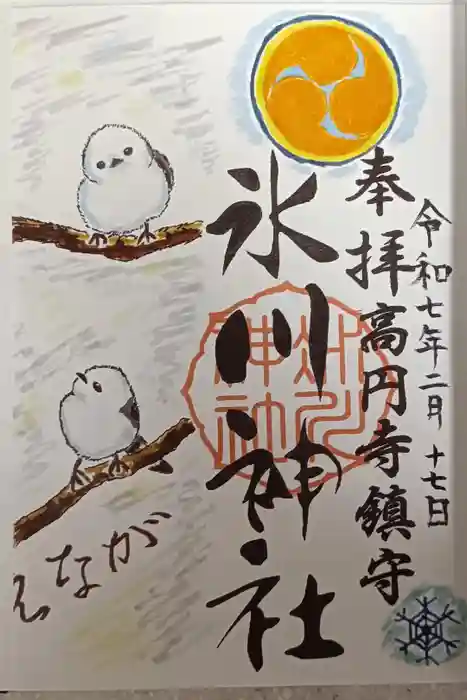 令和七年二月 十七日
奉拝 高円寺鎮守
氷川神社
氷川神社
えながが